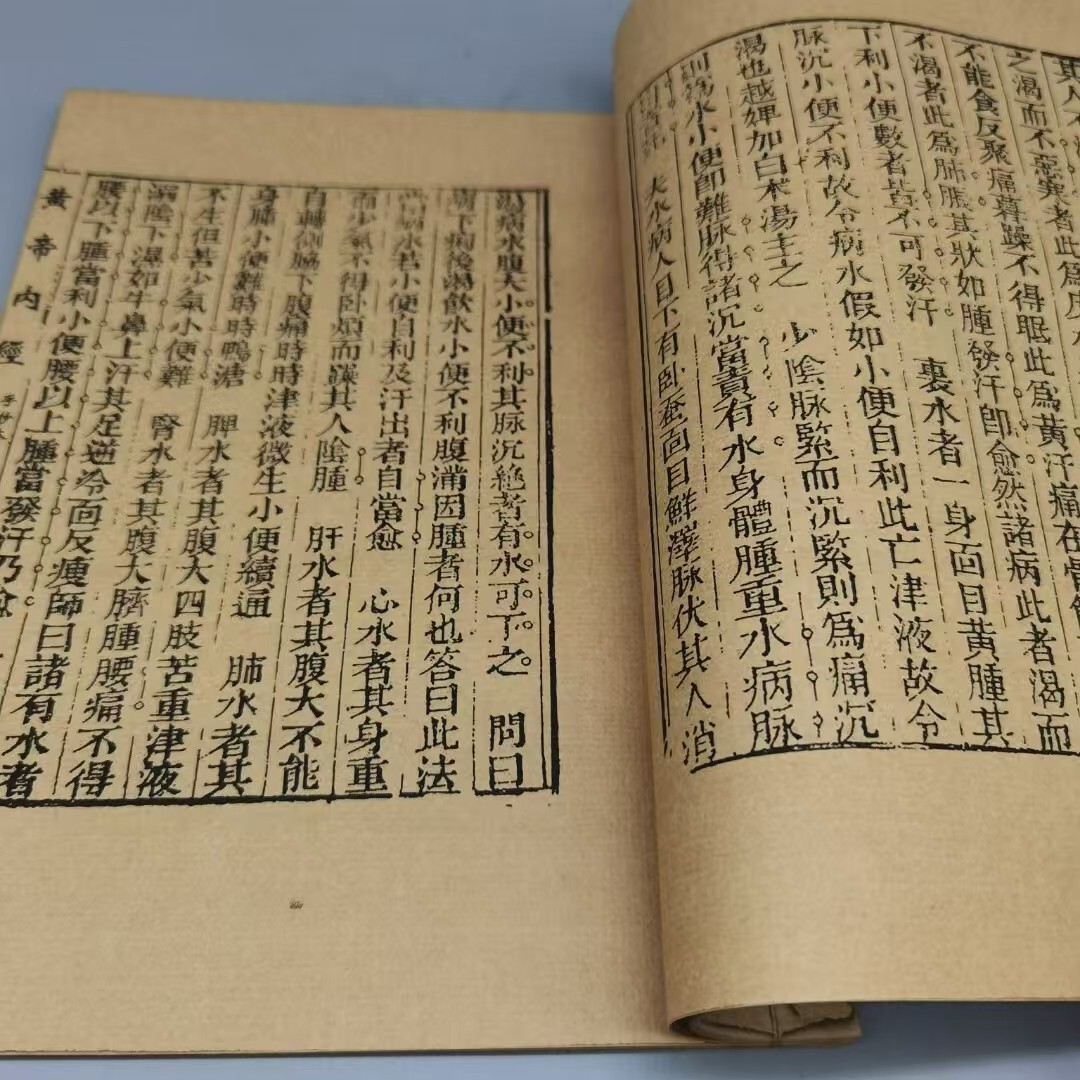 其人不
之渴而不惡寒者此爲皮水
不能食反聚痛暮躁不得眠此爲黃汗痛在骨
不渴者此爲肺脹其狀如腫發汗卽愈然諸病此者渴而
下利小便數者皆不可發汗　裏水者一身面目黃腫其
脉沉小便不利故令病水假如小便自利此亡津液故令
渴也越婢加白术湯主之　少陰脉緊而沉緊則爲痛沉
水小便卽難脉得諸沉當責有水身體腫重水病脉
夫水病人目下有卧蚕面目鮮澤脉伏其人消
渴病水腹大小便不利其脉沉絶者有水可下之　問曰
病下痢後渴飲水小便不利腹滿因腫者何也答曰此法
當病水若小便自利及汗出者自當愈　心水者其身重
而少氣不得卧煩而躁其人陰腫　肝水者其腹大不能
自轉側脇下腹痛時時津液微生小便續通　肺水者其
身腫小便難時時鴨溏　脾水者其腹大四肢苦重津液
不生但苦少氣小便難　腎水者其腹大臍腫腰痛不得
溺陰下濕如牛鼻上汗其足逆冷面反瘦師曰諸有水者
腰以下腫當利小便腰以上腫當發汗乃愈
黃帝內經